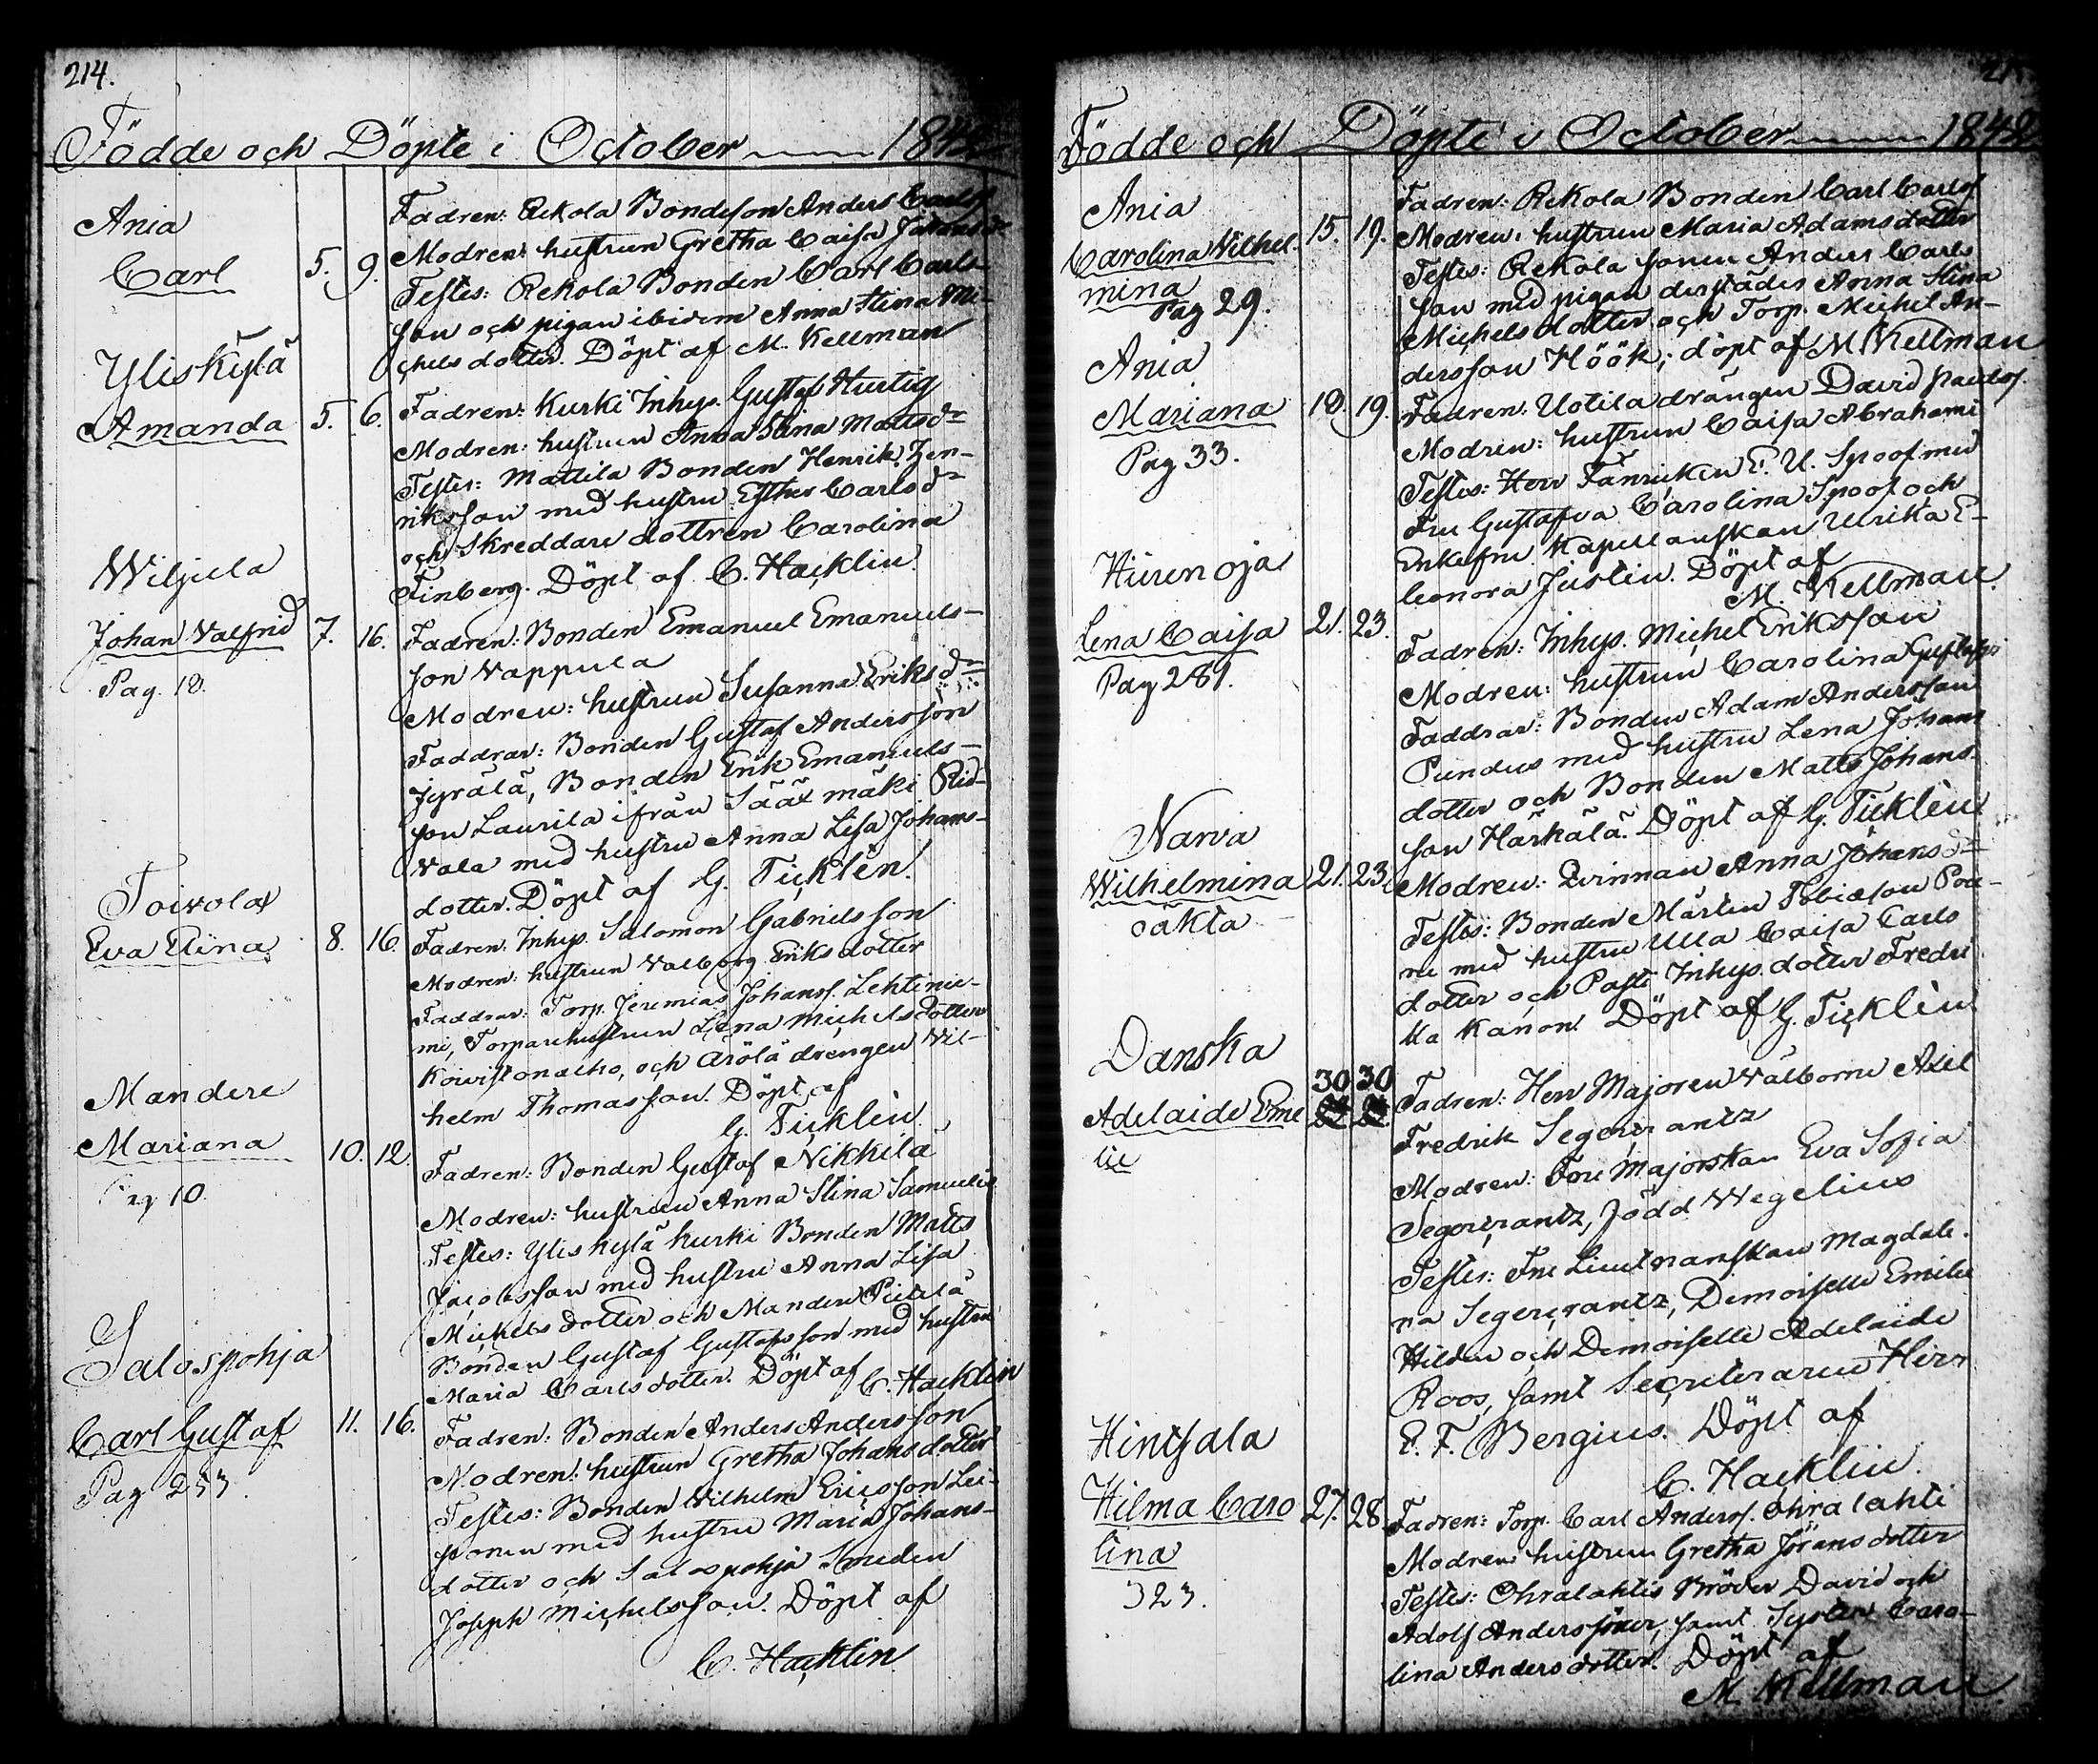 214.
Födde och Döpte i October 1842
Ania
Carl 5. 9.
Fadren: Rekola Bondeson Anders Carlss
Modren: hustrun Gretha Caisa
Testes: Rekola Bonden Carl Carls-
son och pigan ibidem Anna Stina Mi-
chelsdotter. Döpt af M. Kellman
Yliskylä
Amanda 5. 6.
Fadren: Kurki Inhys. Gustaf Hurtig
Modren: hustrun Anna Stina Mattsdr
Testes: Mattila Bonden Henrik Hen-
riksson med hustru Esther Carlsdr
och Skreddare dottren Carolina
Finberg. Döpt af C. Hacklin.
Wiljiula
Johan Valfrid 7. 16.
Pag. 18.
Fadren: Bonden Emanuel Emanuels-
son Vappula
Modren: hustrun Susanna Eriksdr
Faddrar: Bonden Gustaf Andersson
Jyrälä, Bonden Erik Emanuels-
son Laurila ifrån Sääxmäki Rid-
vala med hustru Anna Lisa Johans-
dotter. Döpt af G. Ticklén.
Toivola
Eva Stina 8. 16.
Fadren: Inhys. Salomon Gabrielsson
Modren: hustrun Valborg Eriksdotter
Faddrar: Torp. Jeremias Johanss. Lehtinie-
mi, Torpare hustrun Lena Michelsdotter
Koivistonalho, och Arölä drengen Wil-
helm Thomasson. Döpt af
G. Ticklén.
Mandere
Mariana 10. 12.
Pag 10.
Fadren: Bonden Gustaf Nikkilä
Modren: hustrun Anna Stina Samuelis
Testes: Yliskylä Kurki Bonden Matts
Jacobsson med hustru Anna Lisa
Michelsdotter och Mandere Pietilä
Bonden Gustaf Gustafsson med hustru
Maria Carlsdotter. Döpt af C. Hacklin
Salospohja
Carl Gustaf 11. 16.
Pag 253.
Fadren: Bonden Anders Andersson
Modren: hustrun Gretha Johansdotter
Testes: Bonden Wilhelm Ericsson Lei-
ponen med hustru Maria Johans-
dotter och Salospohja Smeden
Joseph Michelsson. Döpt af
C. Hacklin.
Födde och Döpte i October 1842
Ania
Carolina Vilhel- 15. 19.
mina
Pag 29.
Fadren: Rekola Bonden Carl Carlss
Modren: hustrun Maria Adamsdotter
Testes: Rekola sonen Anders Carls
son med pigan derstädes Anna Stina
Michelsdotter och Torp. Michel An-
dersson Höök; döpt af M. Kellman
Ania
Mariana 18. 19.
Pag 33.
Fadren: Uotila drängen David Paulss.
Modren: hustrun Caisa Abrahami
Testes: Herr Fänricken E. U. Spoof med
Fru Gustafva Carolina Spoof och
Enkefru Kapellanskan Ulrika E-
leonora Justin. Döpt af
M. Kellman.
Hiirenoja
Lena Caisa 21. 23.
Pag 281.
Fadren: Inhys. Michel Eriksson
Modren: hustrun Carolina
Faddrar: Bonden Adam Andersson
Pundus med hustru Lena Johans
dotter och Bonden Matts Johans-
son Härkälä. Döpt af G. Ticklén
Narva
Wilhelmina 21. 23.
oäkta
Modren: Qvinnan Anna Johansdr
Testes: Bonden Mårten Tobiason Pou-
ru med hustru Ulla Caisa Carls
dotter och Pasti Inhys dotter Fredri
ka Kanon. Döpt af G. Ticklén.
Danska
30 30
Adelaide Eme
lie
Fadren: Herr Majoren Välborne Axel
Fredrik Segercrantz
Modren: Fru Majorskan Eva Sofia
Segercrantz, född Wegelius
Testes: Fru Lieutnanskan Magdale-
na Segercrantz, Demoiselle Emilie
Hildén och Demoiselle Adelaide
Roos, samt Secreteraren Herr
E. F. Bergius. Döpt af
C. Hacklin.
Hintsala
Hilma Caro 27. 28.
lina
323.
Fadren: Torp. Carl Anderss. Ohralahti
Modren hustrun Gretha Göransdotter
Testes: Ohralahtis Bröder David och
Adolf Anderssöner, samt Syster Caro-
lina Andersdotter. Döpt af
M. Kellman.